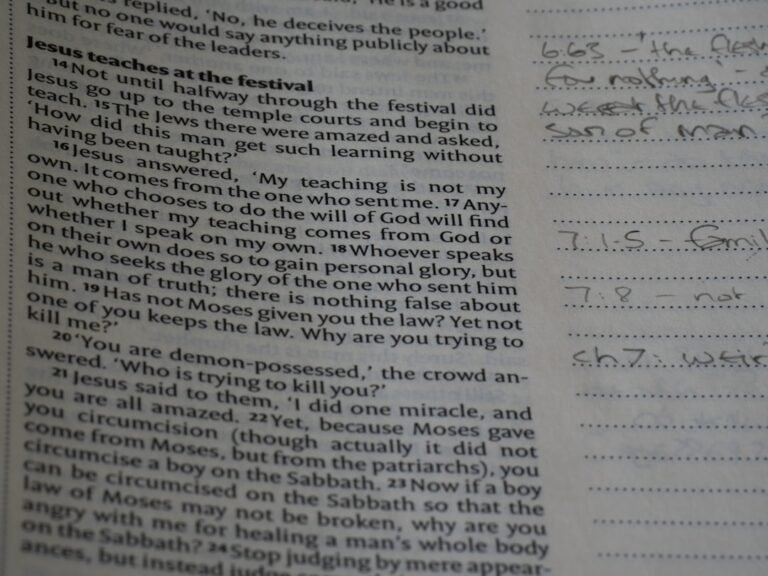 replied, 'No, he deceives the people.'
But no one would say anything publicly about
him for fear of the leaders.
Jesus teaches at the festival
14 Not until halfway through the festival did
Jesus go up to the temple courts and begin to
teach. 15 The Jews there were amazed and asked,
'How did this man get such learning without
having been taught?'
16 Jesus answered, 'My teaching is not my
own. It comes from the one who sent me. 17 Any-
one who chooses to do the will of God will find
out whether my teaching comes from God or
whether I speak on my own. 18 Whoever speaks
on their own does so to gain personal glory, but
he who seeks the glory of the one who sent him
is a man of truth; there is nothing false about
him. 19 Has not Moses given you the law? Yet not
one of you keeps the law. Why are you trying to
kill me?'
20 'You are demon-possessed,' the crowd an-
swered. 'Who is trying to kill you?'
21 Jesus said to them, 'I did one miracle, and
you are all amazed. 22 Yet, because Moses gave
you circumcision (though actually it did not
come from Moses, but from the patriarchs), you
circumcise a boy on the Sabbath. 23 Now if a boy
can be circumcised on the Sabbath so that the
law of Moses may not be broken, why are you
angry with me for healing a man's whole body
on the Sabbath? 24 Stop judging by mere appear-
ances, but instead judge
6:63 - 'the flesh
for nothing' -
the
son of man
7:1-5 -
7:8 - not
ch 7: